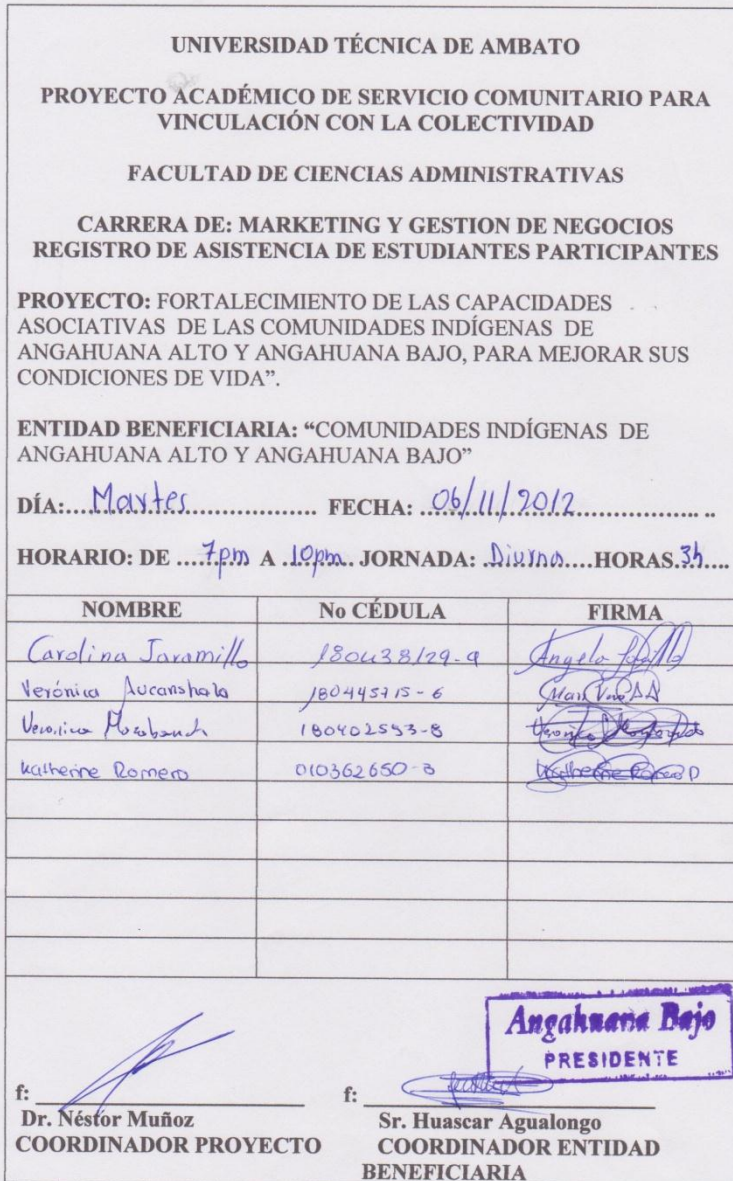 UNIVERSIDAD TÉCNICA DE AMBATO
PROYECTO ACADÉMICO DE SERVICIO COMUNITARIO PARA
VINCULACIÓN CON LA COLECTIVIDAD
FACULTAD DE CIENCIAS ADMINISTRATIVAS
CARRERA DE: MARKETING Y GESTION DE NEGOCIOS
REGISTRO DE ASISTENCIA DE ESTUDIANTES PARTICIPANTES
PROYECTO: FORTALECIMIENTO DE LAS CAPACIDADES
ASOCIATIVAS DE LAS COMUNIDADES INDÍGENAS DE
ANGAHUANA ALTO Y ANGAHUANA BAJO, PARA MEJORAR SUS
CONDICIONES DE VIDA”.
ENTIDAD BENEFICIARIA: “COMUNIDADES INDÍGENAS DE
ANGAHUANA ALTO Y ANGAHUANA BAJO”
DÍA: Martes FECHA: 06/11/2012
HORARIO: DE 7pm A 10pm JORNADA: Diurna HORAS 3h
NOMBRE No CÉDULA FIRMA
Carolina Jaramillo 180438129-9
Verónica 180445715-6
Veronica 180402553-8
Katherine Romero 010362650-3 Katherine Romero
Angahuana Bajo
PRESIDENTE
f: f:
Dr. Néstor Muñoz Sr. Huascar Agualongo
COORDINADOR PROYECTO COORDINADOR ENTIDAD
BENEFICIARIA